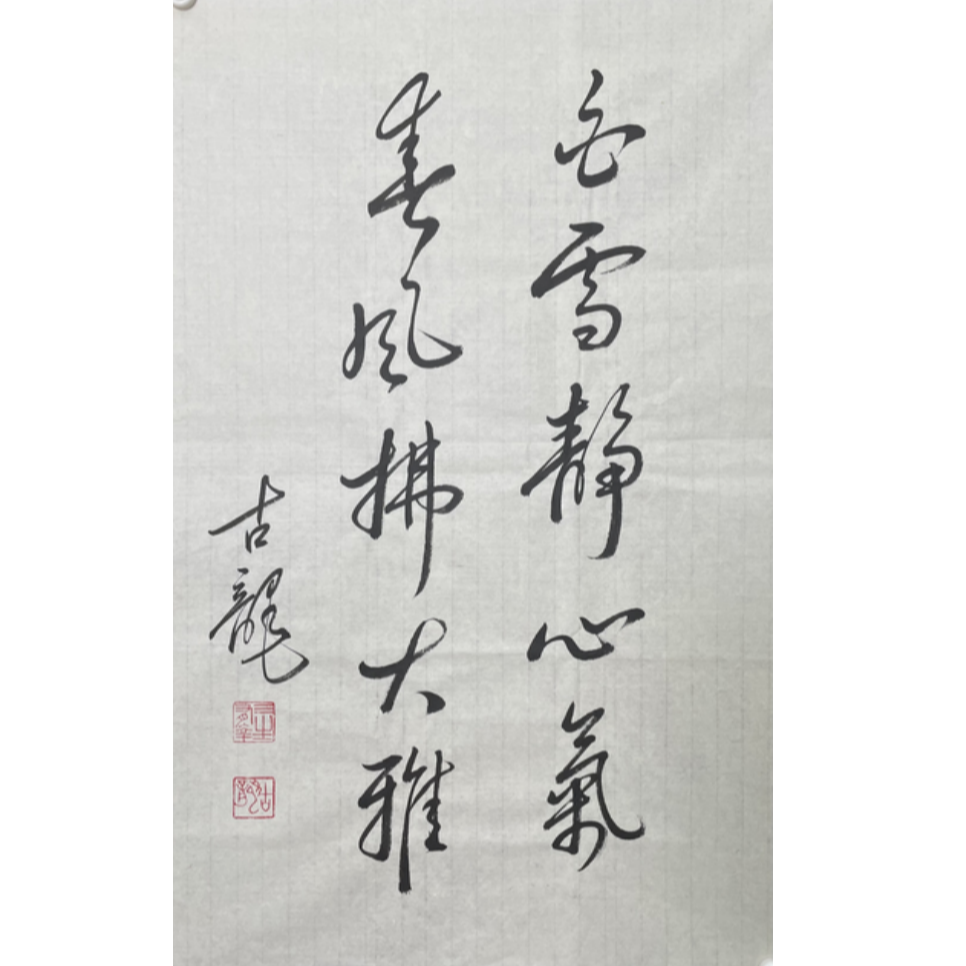 白雪靜心氣
春風拂大雅
古龍